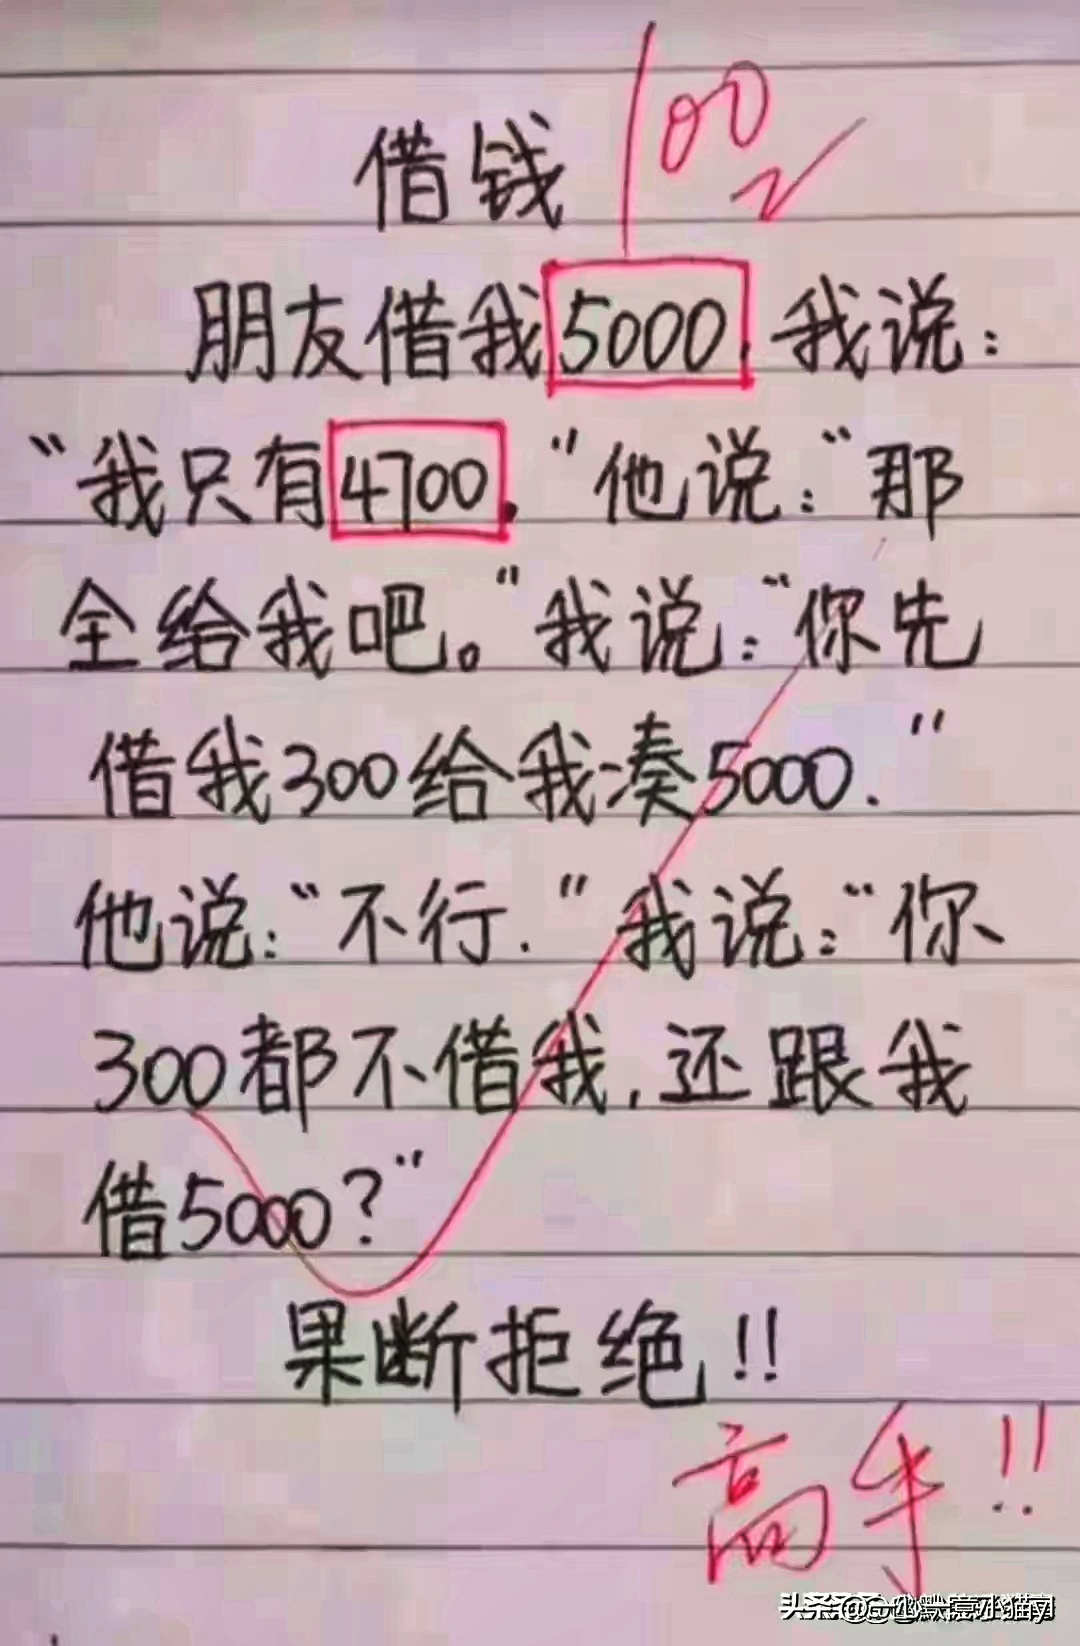 借钱 100
朋友借我5000，我说：
“我只有4700.”他说：“那
全给我吧。”我说：“你先
借我300给我凑5000.”
他说：“不行.”我说：“你
300都不借我，还跟我
借5000？”
果断拒绝!!
高手!!
头条